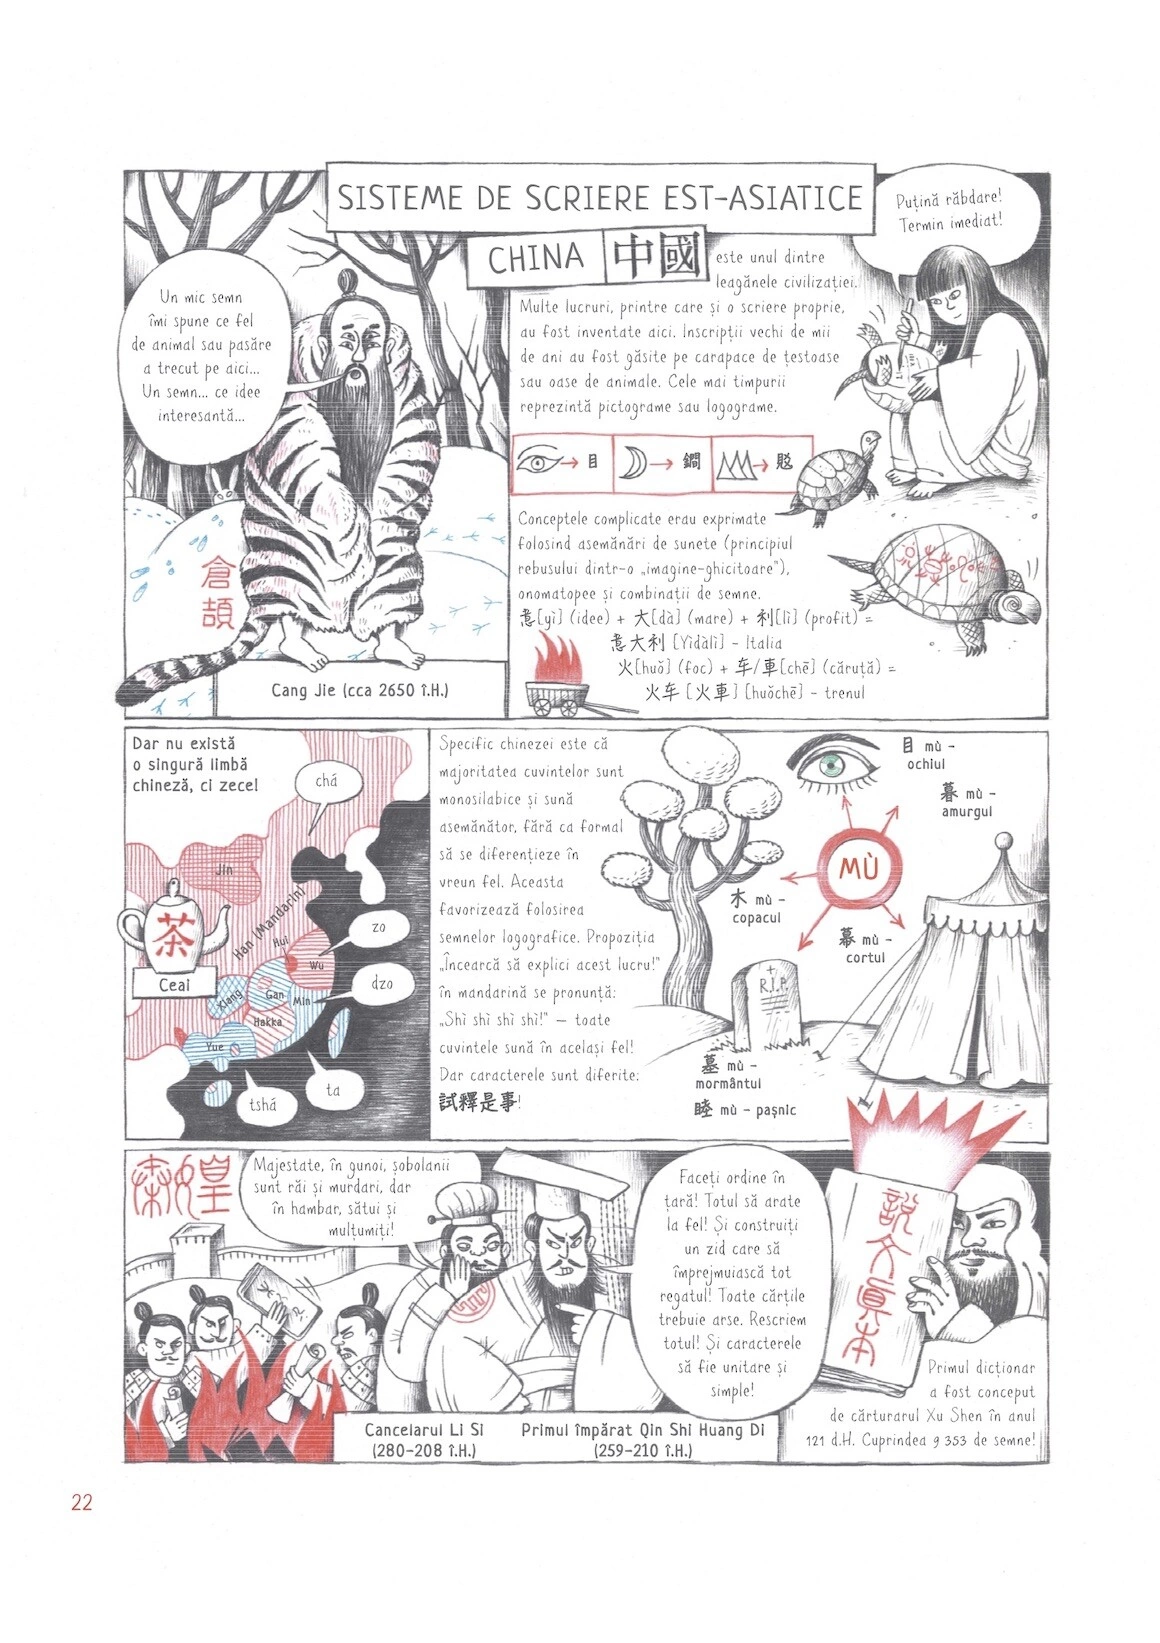 SISTEME DE SCRIERE EST-ASIATICE
CHINA 中國
Puțină răbdare!
Termin imediat!
Un mic semn
îmi spune ce fel
de animal sau pasăre
a trecut pe aici...
Un semn... ce idee
interesantă...
倉
頡
Cang Jie (cca 2650 î.H.)
este unul dintre
leagănele civilizației.
Multe lucruri, printre care și o scriere proprie,
au fost inventate aici. Inscripții vechi de mii
de ani au fost găsite pe carapace de țestoase
sau oase de animale. Cele mai timpurii
reprezintă pictograme sau logograme.
→ 目 → 鐗 →
Conceptele complicate erau exprimate
folosind asemănări de sunete (principiul
rebusului dintr-o „imagine-ghicitoare"),
onomatopee și combinații de semne.
意[yì] (idee) + 大[dà] (mare) + 利[lì] (profit) =
意大利 [Yìdàlì] – Italia
火[huǒ] (foc) + 车/車[chē] (căruță) =
火车 [火車] [huǒchē] – trenul
Dar nu există
o singură limbă
chineză, ci zece!
chá
Jin
Han (Mandarin)
茶
Ceai
Hui
Wu
zo
Xiang
Gan
Min
dzo
Hakka
Yue
tshá
ta
Specific chinezei este că
majoritatea cuvintelor sunt
monosilabice și sună
asemănător, fără ca formal
să se diferențieze în
vreun fel. Aceasta
favorizează folosirea
semnelor logografice. Propoziția
„Încearcă să explici acest lucru!"
în mandarină se pronunță:
„Shì shì shì shì!" – toate
cuvintele sună în același fel!
Dar caracterele sunt diferite:
試釋是事!
目 mù –
ochiul
暮 mù –
amurgul
MÙ
木 mù –
copacul
幕 mù –
cortul
R.I.P.
墓 mù –
mormântul
睦 mù – pașnic
Majestate, în gunoi, șobolanii
sunt răi și murdari, dar
în hambar, sătui și
mulțumiți!
Faceți ordine în
țară! Totul să arate
la fel! Și construiți
un zid care să
împrejmuiască tot
regatul! Toate cărțile
trebuie arse. Rescriem
totul! Și caracterele
să fie unitare și
simple!
Cancelarul Li Si
(280–208 î.H.)
Primul împărat Qin Shi Huang Di
(259–210 î.H.)
說
文
Primul dicționar
a fost conceput
de cărturarul Xu Shen în anul
121 d.H. Cuprindea 9 353 de semne!
22